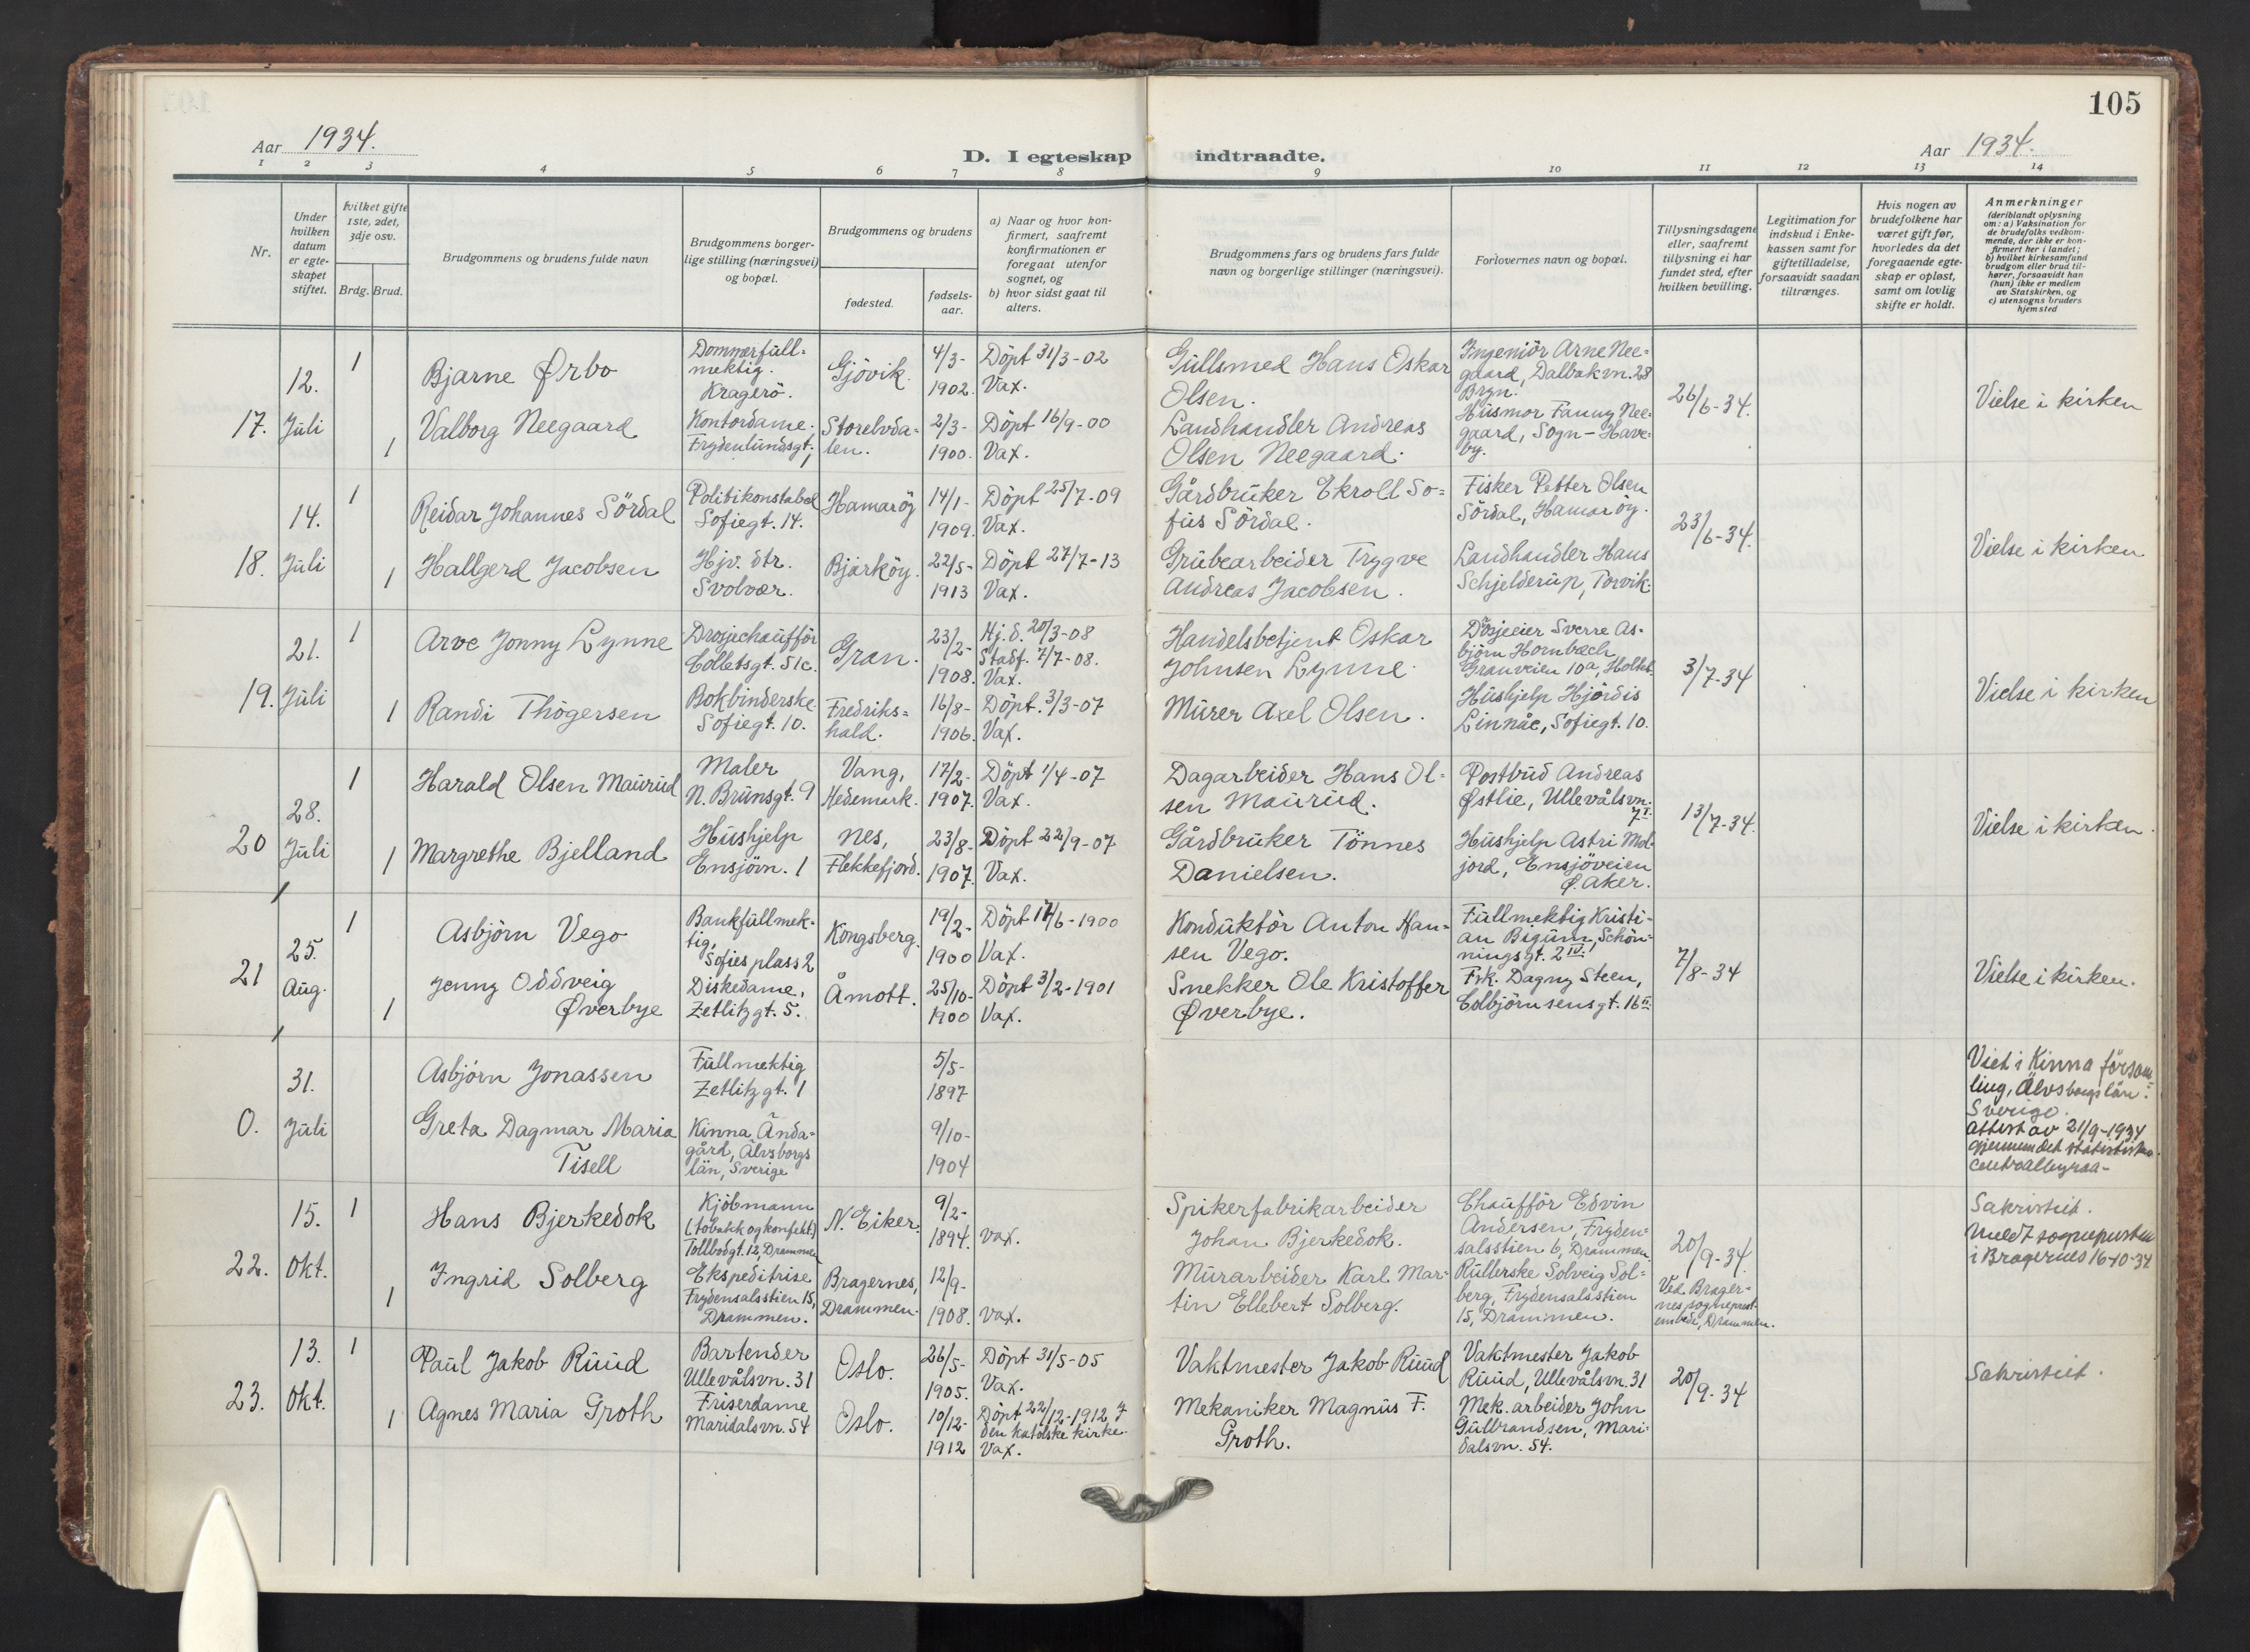 105
Aar 1934.
D. I egteskap indtraadte.
Aar 1934.
1 2 3 4 5 6 7 8 9 10 11 12 13 14
Nr.
Under
hvilken
datum
er egte-
skapet
stiftet.
hvilket gifte
1ste, 2det,
3dje osv.
Brdg. Brud.
Brudgommens og brudens fulde navn
Brudgommens borger-
lige stilling (næringsvei)
og bopæl.
Brudgommens og brudens
fødested.
fødsels-
aar.
a) Naar og hvor kon-
firmert, saafremt
konfirmationen er
foregaat utenfor
sognet, og
b) hvor sidst gaat til
alters.
Brudgommens fars og brudens fars fulde
navn og borgerlige stillinger (næringsvei).
Forlovernes navn og bopæl.
Tillysningsdagene
eller, saafremt
tillysning ei har
fundet sted, efter
hvilken bevilling.
Legitimation for
indskud i Enke-
kassen samt for
giftetilladelse,
forsaavidt saadan
tiltrænges.
Hvis nogen av
brudefolkene har
været gift før,
hvorledes da det
foregaaende egte-
skap er opløst,
samt om lovlig
skifte er holdt.
Anmerkninger
(deriblandt oplysning
om: a) Vaksination for
de brudefolks vedkom-
mende, der ikke er kon-
firmert her i landet;
b) hvilket kirkesamfund
brudgom eller brud til-
hører, forsaavidt han
(hun) ikke er medlem
av Statskirken, og
c) utensogns bruders
hjemsted
17.
12.
Juli
1
Bjarne Ørbo
Dommerfull-
mektig.
Kragerö.
Gjövik.
4/3-
1902.
Döpt 31/3-02
Vax.
Gullsmed Hans Oskar
Olsen.
Ingeniör Arne Nee-
gaard, Dalbakvn. 28
Bryn.
26/6-34.
Vielse i kirken
1
Valborg Neegaard
Kontordame.
Frydenlundsgt.
Storelvda-
len.
2/3-
1900.
Döpt 16/9-00
Vax.
Landhandler Andreas
Olsen Neegaard.
Husmor Fanny Nee-
gaard, Sogn-Have-
by.
18.
14.
Juli
1
Reidar Johannes Sördal
Politikonstabel
Sofiegt. 14.
Hamaröy
14/1-
1909.
Döpt 25/7-09
Vax.
Gårdbruker Ekroll So-
fus Sördal.
Fisker Petter Olsen
Sördal, Hamaröy.
23/6-34.
Vielse i kirken
1
Hallgerd Jacobsen
Hjv. dtr.
Svolvær.
Bjarköy.
22/5-
1913
Döpt 27/7-13
Vax.
Grubearbeider Trygve
Andreas Jacobsen.
Landhandler Hans
Schjelderup, Torvik.
19.
21.
Juli
1
Arve Jonny Lynne
Drosjechaufför
Colletsgt. 51c.
Gran.
23/2-
1908.
Hj.d. 20/3-08
Stadf. 7/7-08.
Vax.
Handelsbetjent Oskar
Johnsen Lynne.
Drosjeeier Sverre As-
björn Hornbæch
Granveien 10a, Holtet.
3/7-34
Vielse i kirken
1
Randi Thögersen
Bokbinderske
Sofiegt. 10.
Fredriks-
hald.
16/8-
1906.
Döpt. 3/3-07
Vax.
Murer Axel Olsen.
Hushjelp Hjördis
Linnåe, Sofiegt. 10.
20
28.
Juli
1
Harald Olsen Maurud
Maler
N. Brunsgt. 9
Vang,
Hedemark.
17/2-
1907.
Döpt 1/4-07
Vax.
Dagarbeider Hans Ol-
sen Maurud.
Postbud Andreas
Østlie, Ullevålsvn.
7 I.
13/7-34.
Vielse i kirken.
1
Margrethe Bjelland
Hushjelp
Ensjövn. 1
Nes,
Flekkefjord.
23/8-
1907.
Döpt 22/9-07
Vax.
Gårdbruker Tönnes
Danielsen.
Hushjelp Astri Mol-
jord, Ensjöveien
Ø. Aker.
21
25.
Aug.
1
Asbjörn Vego
Bankfullmek-
tig,
Sofies plass 2
Kongsberg.
19/2-
1900
Döpt 17/6-1900
Vax.
Konduktör Anton Han-
sen Vego.
Fullmektig Kristi-
an Bigum, Schön-
ningsgt. 2 IV.
7/8-34
Vielse i kirken.
1
Jenny Oddveig
Øverbye
Diskedame,
Zetlitzgt. 5.
Åmott.
25/10-
1900
Döpt 3/2-1901
Vax.
Snekker Ole Kristoffer
Øverbye.
Frk. Dagny Steen,
Colbjörnsensgt. 16 II.
0.
31.
Juli
Asbjörn Jonassen
Fullmektig
Zetlitzgt. 1
5/5-
1897
Viet i Kinna försam-
ling, Älvsborgs län.
Sverige.
Attest av 21/9-1934
gjennem det statistiske
centralbyraa-
Greta Dagmar Maria
Tisell
Kinna Ända-
gård, Älvsborgs
län, Sverige
9/10-
1904
22.
15.
Okt.
1
Hans Bjerkedok
Kjöbmann
(tobakk og konfekt.)
Tollbodgt. 12, Drammen
N. Eiker.
9/2-
1894.
Vax.
Spikerfabrikarbeider
Johan Bjerkedok.
Chaufför Edvin
Andersen, Fryden-
salsstien 6, Drammen
20/9-34.
Ved Brager-
nes sogneprest-
embede, Drammen.
Sakristiet.
Meldt sognepresten
i Bragernes 16-10-34
1
Ingrid Solberg
Ekspeditrise
Frydensalsstien 15,
Drammen.
Bragernes,
Drammen.
12/9-
1908.
Vax.
Murarbeider Karl Mar-
tin Ellebert Solberg.
Rullerske Solveig Sol-
berg, Frydensalsstien
15, Drammen.
23.
13.
Okt.
1
Paul Jakob Ruud
Bartender
Ullevålsvn. 31
Oslo.
26/5-
1905.
Döpt 31/5-05
Vax.
Vaktmester Jakob Ruud
Vaktmester Jakob
Ruud, Ullevålsvn. 31
20/9-34
Sakristiet.
1
Agnes Maria Groth
Friserdame
Maridalsvn. 54
Oslo.
10/12-
1912
Döpt 22/12-1912 I
den katolske kirke.
Vax.
Mekaniker Magnus F.
Groth.
Mek. arbeider John
Gulbrandsen, Mari-
dalsvn. 54.